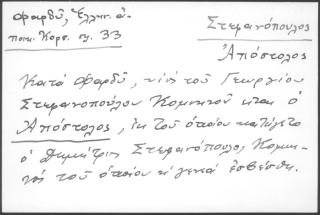 Φαρδύ, Ἑλλην. ἀ-
ποικ. Κορσ. ση. 33
Στεφανόπουλος
Ἀπόστολος
Κατά Φαρδύ, υἱός τοῦ Γεωργίου
Στεφανοπούλου Κομνηνοῦ εἶναι ὁ
Ἀπόστολος, ἐκ τοῦ ὁποίου κατήγετο
ὁ Δημήτριος Στεφανόπουλος Κομνη-
νός τοῦ ὁποίου ἡ γενιά ἐσβέσθη.